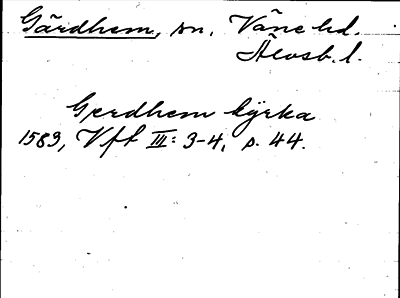 Gärdhem, sn. Väne hd.
Älvsb. l.
Gerdhem kyrka
1583, Vft III: 3-4, s. 44.